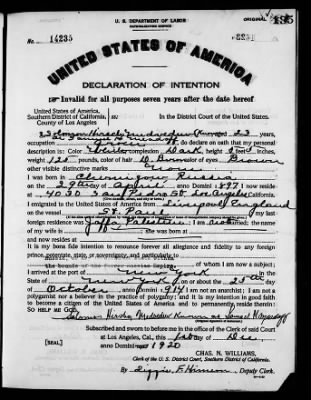 U. S. DEPARTMENT OF LABOR
NATURALIZATION SERVICE
ORIGINAL
No. 14235
UNITED STATES OF AMERICA
DECLARATION OF INTENTION
Invalid for all purposes seven years after the date hereof
United States of America,
Southern District of California,
County of Los Angeles
ss:
In the District Court of the United States.
aged 23 years,
occupation Grocer, do declare on oath that my personal
description is: Color White, complexion Dark, height feet inches,
weight 120 pounds, color of hair D. Brown color of eyes Brown
other visible distinctive marks
I was born in Russia
on the 29th day of April, anno Domini 1897; I now reside
at San Pedro St. Los Angeles, California.
I emigrated to the United States of America from Liverpool England
on the vessel St. Paul; my last
foreign residence was Jaffa Palestine; I am not married; the name
of my wife is; she was born at
and now resides at
It is my bona fide intention to renounce forever all allegiance and fidelity to any foreign
prince, potentate, state, or sovereignty, and particularly to
, of whom I am now a subject;
I arrived at the port of New York, in the
State of New York, on or about the 25th day
of October, anno Domini 1914; I am not an anarchist; I am not a
polygamist nor a believer in the practice of polygamy; and it is my intention in good faith
to become a citizen of the United States of America and to permanently reside therein:
SO HELP ME GOD.
Subscribed and sworn to before me in the office of the Clerk of said Court
at Los Angeles, Cal., this 1st day of Dec
[SEAL]
anno Domini 1920
CHAS. N. WILLIAMS,
Clerk of the U. S. District Court, Southern District of California.
By Deputy Clerk.